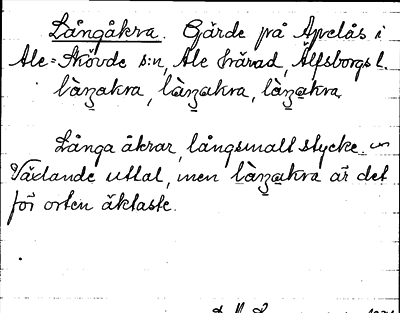 Långåkra. Gärde på Apelås i
Ale=Skövde s:n, Ale härad, Älfsborgs l.
làŋakra, làŋakra, làŋakra
Långa åkrar, långsmalt stycke.
Växlande uttal, men làŋakra är det
för orten äktaste.